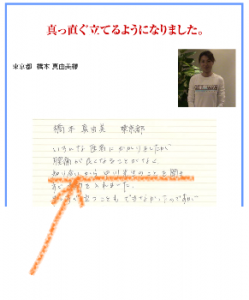 真っ直ぐ立てるようになりました。
東京都 橋本 真由美様
橋本 真由美 東京都
いろいろな 医者に かかりましたが
腰痛が 良くなることがなく
知り合いから 中川先生のことを聞き